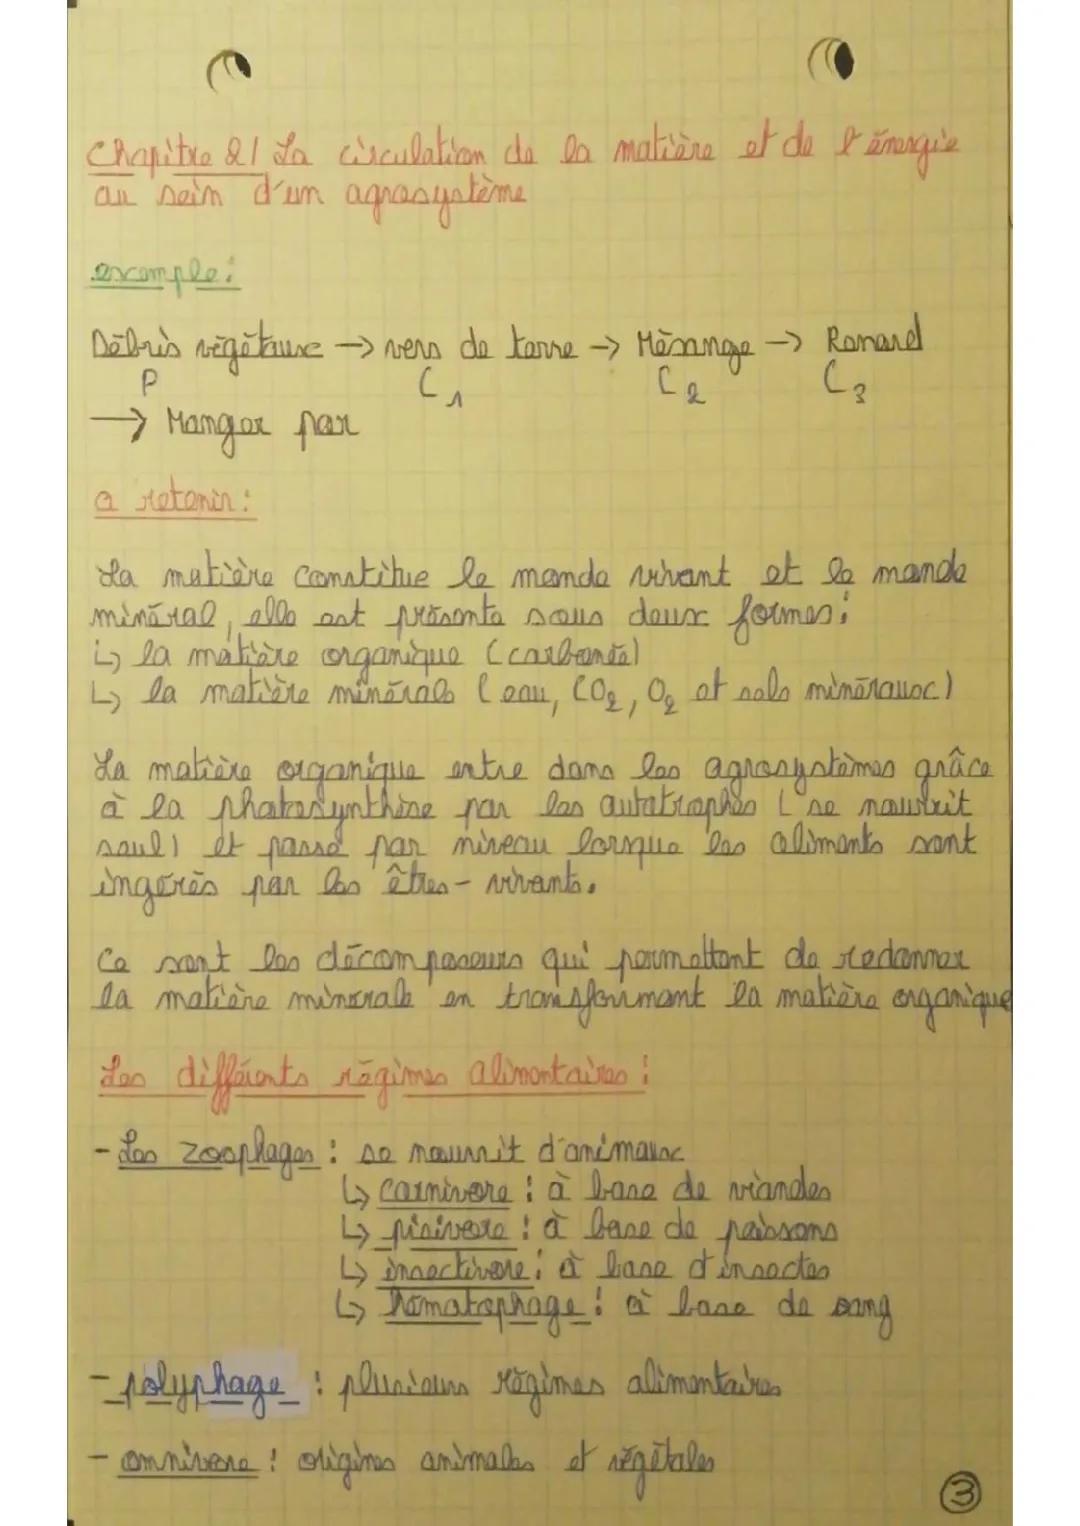 Chapitre 2/ La circulation de la matière et de l'énergie
au sein d'un agrosystème
exemple:
Débris végétaux → vers de terre → Mésange → Renard
P C1 C2 C3
→ Manger par
a retenir:
La matière constitue le monde vivant et le monde
minéral, elle est présente sous deux formes:
↳ la matière organique (carbonée)
↳ la matière minérale (eau, CO2, O2 et sels minéraux)
La matière organique entre dans les agrosystèmes grâce
à la photosynthèse par les autotrophes (se nourrit
seul) et passe par niveau lorsque les aliments sont
ingérés par les êtres-vivants.
Ce sont les décomposeurs qui permettent de redonner
la matière minérale en transformant la matière organique
Les différents régimes alimentaires:
- Les zoophages: se nourrit d'animaux
↳ carnivore: à base de viandes
↳ pisivore: à base de poissons
↳ insectivore: à base d'insectes
↳ hématophage: à base de sang
- polyphage: plusieurs régimes alimentaires
- omnivore: origines animales et végétales
3